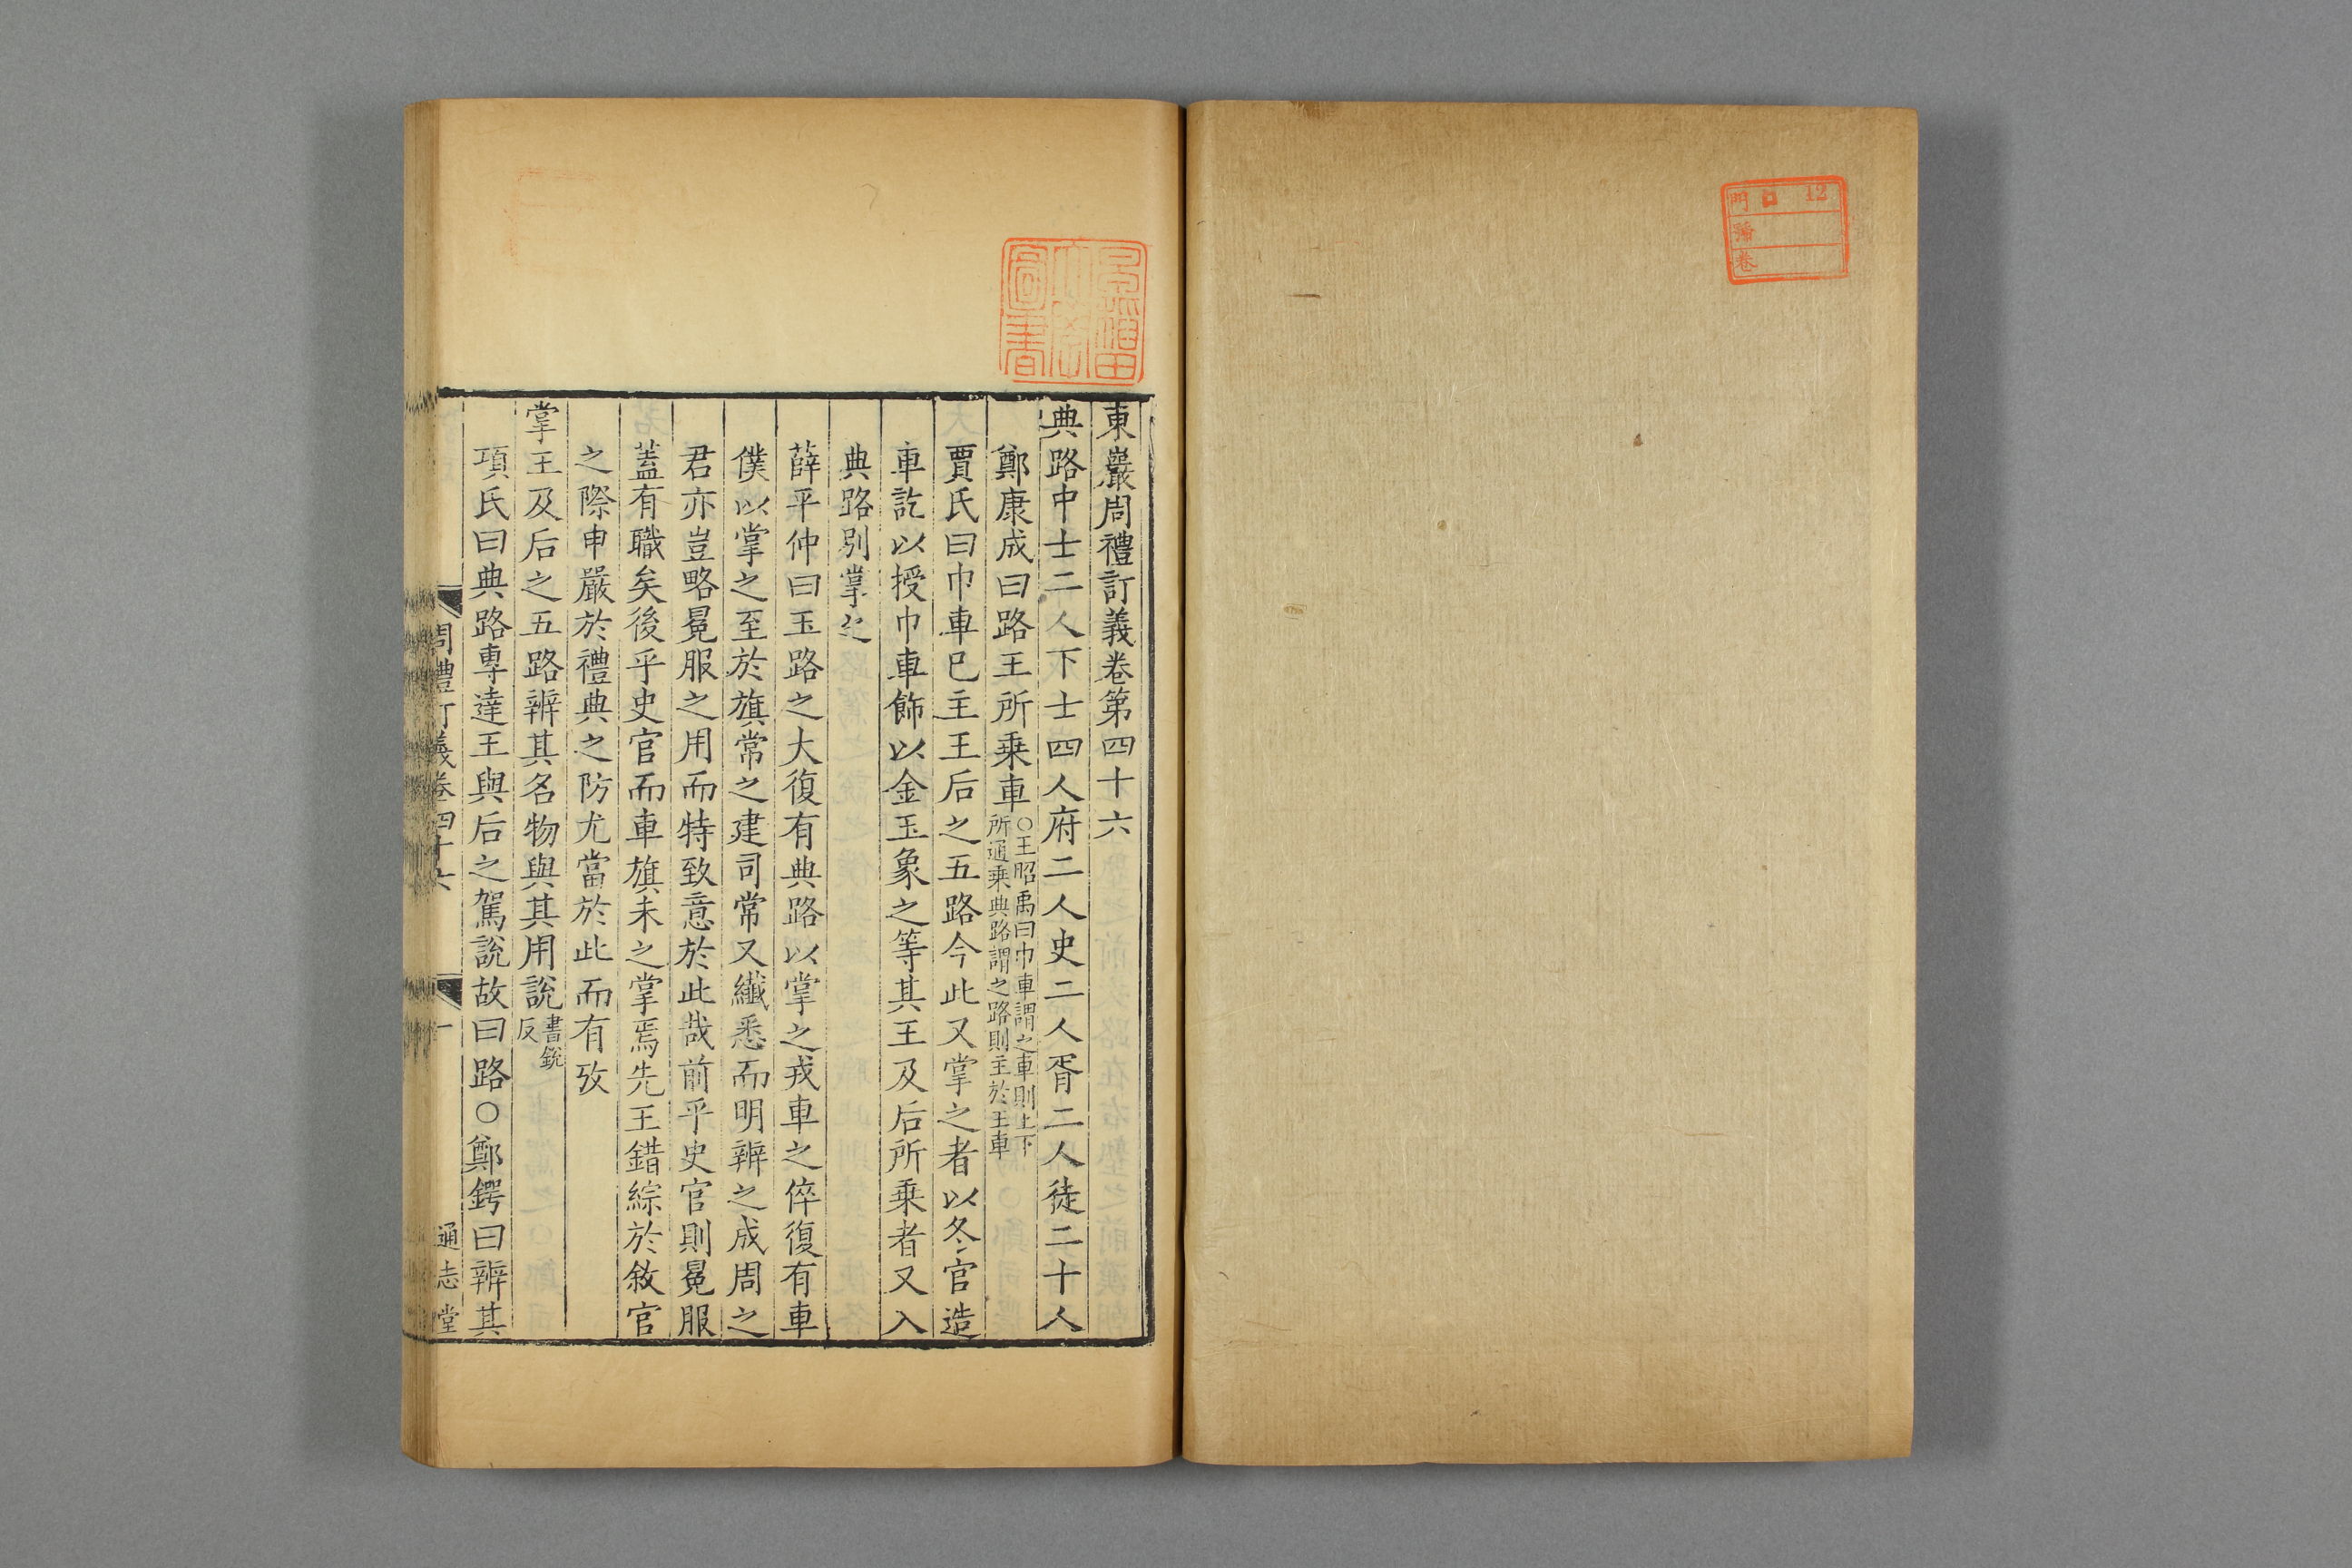 門 口 12
番
卷
東巖周禮訂義卷第四十六
典路中士二人下士四人府二人史二人胥二人徒二十人
鄭康成曰路王所乗車
○王昭禹曰巾車謂之車則上下
所通乗典路謂之路則主於王車
賈氏曰巾車已主王后之五路今此又掌之者以冬官造
車訖以授巾車飾以金玉象之等其王及后所乗者又入
典路别掌之
薛平仲曰玉路之大復有典路以掌之戎車之倅復有車
僕以掌之至於旗常之建司常又纖悉而明辨之成周之
君亦豈略冕服之用而特致意於此哉前乎史官則冕服
蓋有職矣後乎史官而車旗未之掌焉先王錯綜於敘官
之際申嚴於禮典之防尤當於此而有攷
掌王及后之五路辨其名物與其用說
書銳
反
項氏曰典路專達王與后之駕說故曰路○鄭鍔曰辨其
周禮訂義卷四十六
一
通志堂
圖書